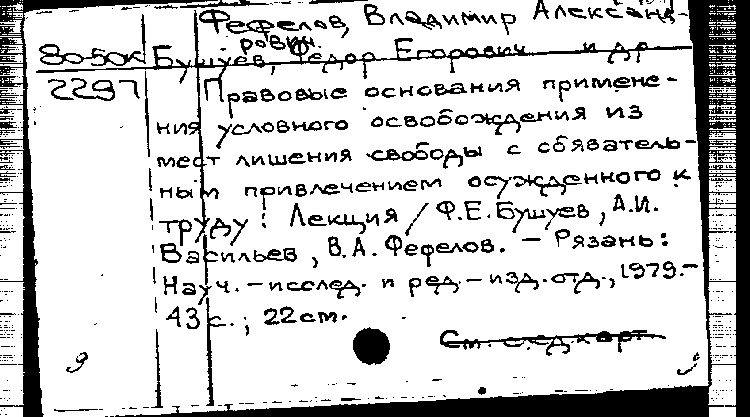 Фефелов, Владимир Александ-
рович.
80-50К Бушуев, Федор Егорович и др
2297 Правовые основания примене-
ния условного освобождения из
мест лишения свободы с обязатель-
ным привлечением осужденного к
труду : Лекция / Ф.Е.Бушуев, А.И.
Васильев, В.А.Фефелов. – Рязань:
Науч.-исслед. и ред.-изд.отд., 1979.-
43 с.; 22 см.
См. след карт.
9